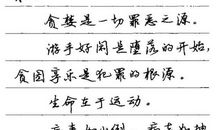 贪婪是一切罪恶之源。
游手好闲是堕落的开始,
贪图享乐是犯罪的根源。
生命在于运动。